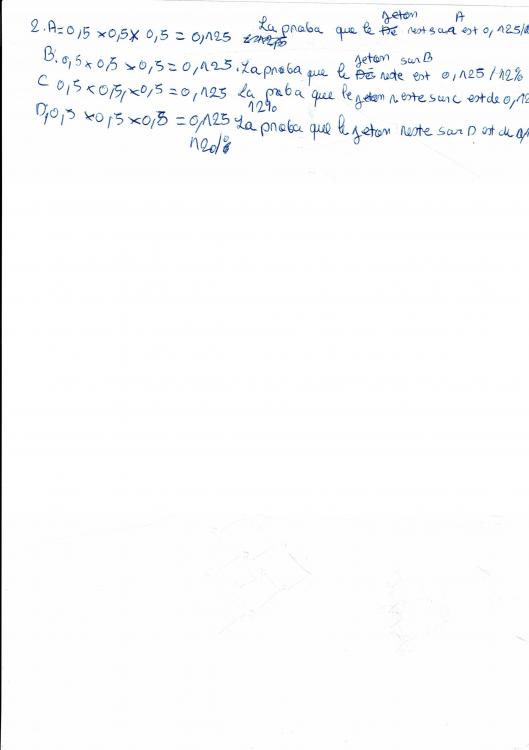 jeton A
2. A = 0,5 x 0,5 x 0,5 = 0,125 La proba que le rest sur est 0,125/
jeton sur B
B. 0,5 x 0,5 x 0,5 = 0,125. La proba que le reste est 0,125 / 12%
C 0,5 x 0,5, x 0,5 = 0,125 La paba que le jeton reste sur C est de 0,12
12%
D, 0,5 x 0,5 x 0,5 = 0,125 La proba que le jeton reste sur D est de